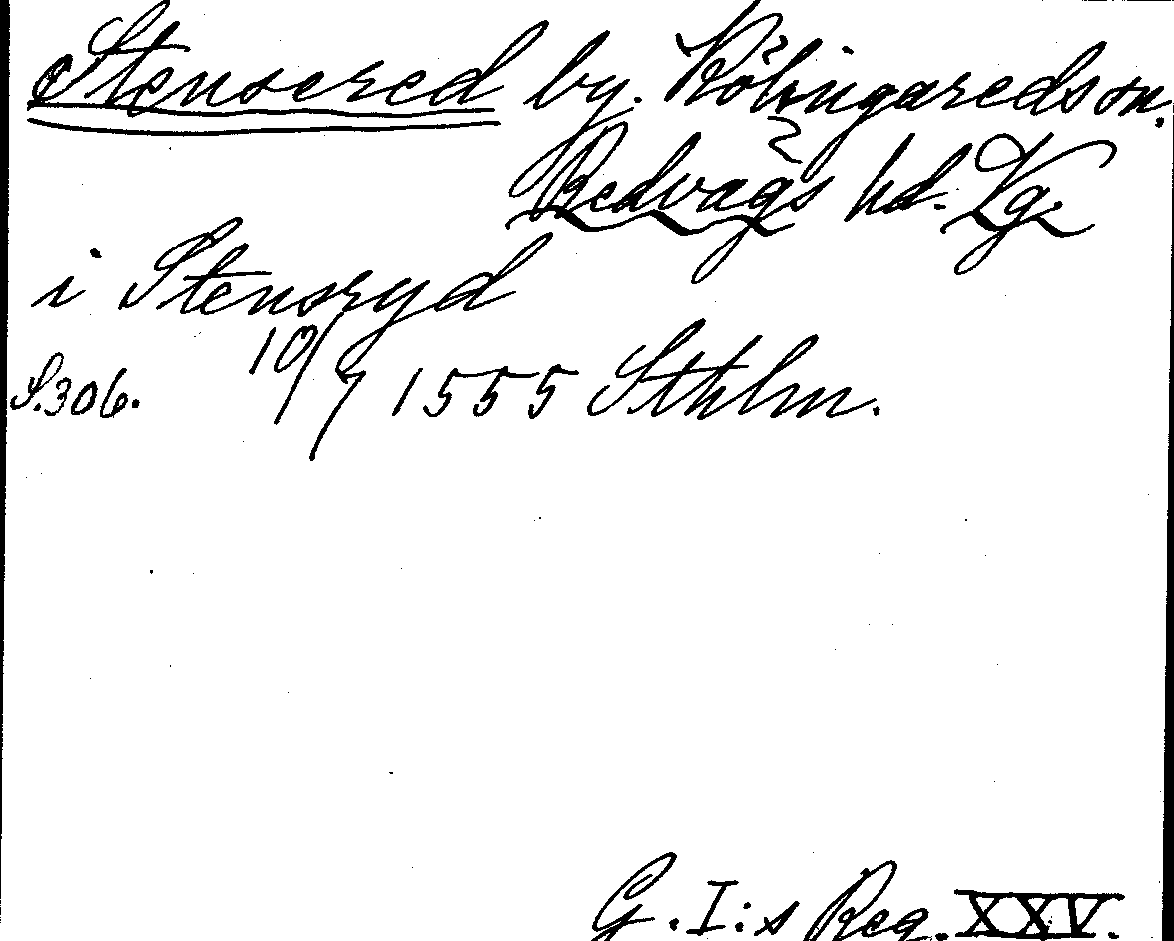 Stensered by. Kölingareds sn.
Redvägs hd. Vg.
i Stensryd
S. 306. 10/7 1555 Sthlm.
G. I:s Reg. XXV.